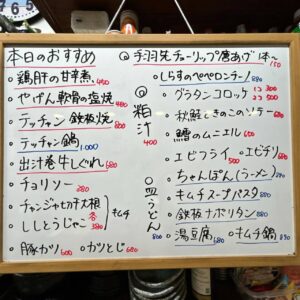 本日のおすすめ
○鶏肝の甘辛煮 400
○やげん軟骨の塩焼 400
○テッチャン鉄板焼 800
○テッチャン鍋 1.000
○出汁巻牛しぐれ 680
○チョリソー 280
○チャンジャセロリ大根
○ししとうじゃこ 各380 キムチ
○豚カツ 600 ○カツとじ 680
○粕汁 400
○皿うどん 800
○手羽先チューリップ唐あげ 1本〜 150
○しらすのペペロンチーノ 880
○グラタンコロッケ 1コ 300 2コ 500
○秋鮭ときのこのソテー
○鱈のムニエル 650
○エビフライ 500 ○エビチリ 680
○ちゃんぽん(ラーメン) 880
○キムチスープパスタ 880
○鉄板ナポリタン 880
○湯豆腐 680 ○キムチ鍋 890